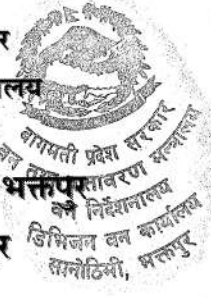 र
लय
भक्तपुर
र
बागमती प्रदेश सरकार
वन तथा वातावरण मन्त्रालय
वन निर्देशनालय
डिभिजन वन कार्यालय
सानोठिमी, भक्तपुर